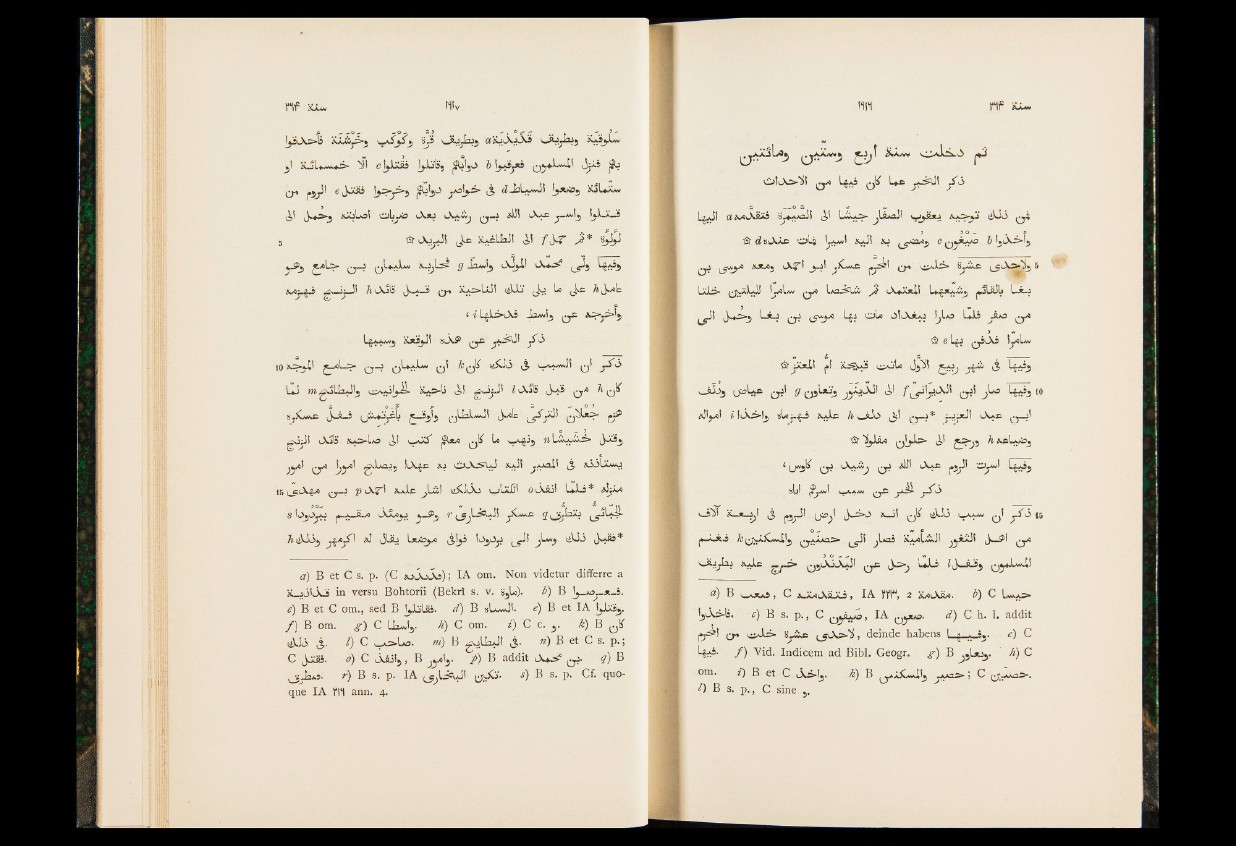 سنة ٢٦٤
١٩١٦
ثم دخلت سنة اربع وستّين ومائتين
ذكر الخبر عما كان فيها من الاحداث
فمن ذلك توجيه يعقوب الصفار جيشًا الى الصَّيْمَرة فتقدّمته a اليها
وأخذوا b صَيْغُون c ومُضى به اليه اسيرا فمات عنده d ۞
5 ولاحدى عشرة خلت من المحرّم عسكر ابو احمد ومعه موسى بن
بغا بالقائم وشيّعهما المعتمد ثم شخصا من سامرا لليلتين خلتا
من صفر فلمّا صارا ببغداد مات بها موسى بن بغا وحُمل الى
سامرّا فدُفن بها e ۞
وفيها فى شهر ربيع الاوّل ماتت قبيحة امّ المعتزّ ۞
10 وفيها صار ابن الدَّيْرانىّ f الى الدِّينَوَر وتعاون g ابن عياض ودُلَف
ابن عبد العزيز *بن ابى دلف h عليه فهزماه واخذا i امواله
وضياعه h ورجع الى حلوان مفلولا ۞
وفيها اسرت الروم عبد الله بن رشيد بن كاوس،
ذكر الخبر عن سبب اسرهم اياه
15 ذُكر ان سبب ذلك كان انه دخل ارض الروم فى اربعة آلاف
من اهل الثغور الشأميّة فصار الى حصنَيْن والمسكنين k فغنم
المسلمون وقفل l فلمّا رحل عن البَدَنْدُون خرج عليه بطريف
a) B فبعث, C فتتقدمته, IA ٢٢٣, 2 مقدمة. b) C حبيسا
فاخذوا. c) B s. p., C صيفون, IA صعون. d) C h. l. addit
لاحدى عشرة خلت من المحرم, deinde habens وفيها. e) C
فيها. f) Vid. Indicem ad Bibl. Geogr. g) B ويعاور. h) C
om. i) B et C واخذ. k) B حصير والمسكنس; C حصنين.
l) B s. p., C sine و.
١٩١٧
سنة ٢٦٤
سَلُوقِيَة وبطريف قَذَيْذِيَة a وبطريف قُرَّة وكَوْكَب وخَرْشَنَة فأحدقوا
بهم فنزل المسلمون فعرقبوا b دوابّهم وقاتلوا فقتلوا c الّا خمسمائة او
ستّمائة وضعوا السياط d فى خواصر دوابّهم وخرجوا فقتل e الروم من
قتلوا واسر عبد الله بن رشيد بعد ضربات اصابته وحُمل الى
5 لُؤْلُؤة *ثم حمل f الى الطاغية على البريد ۞
وفيها ولى محمّد المولّد واسط g فحاربه سليمان بن جامع وهو
عامل h على ما يلى تلك الناحية من قبل قائد h الزنج فهزمه
وأخرجه عن واسط فدخلها i،
ذكر الخبر عن هذه الوقعة وسببها
10 ذُكر ان السبب فى ذلك كان k ان سليمان بن جامع الموجّه
كان h من قبل قائد l الزنج الى ناحية الحوانيت والبطائح m لمّا
هزم جُعْلان التركىّ عامل السلطان وأوقع بأغرتمش ففلّ عسكره
وقتل خُشَيْشًا n ونهب ما كان معهم كتب الى صاحبه قائد الزنج
يستأذنه فى المصير اليه ليحدث به عهدا ويصلح امورا من امور
15 منزله *فلمّا انفذ o الكتاب بذلك اشار عليه احمد p بن مهدىّ
الجُبّائىّ بتطرّق q عسكر البخارىّ r وهو يومئذ مقيم ببَرْدودا s
*فقبل ذلك وسار الى بردودا فوافى موضعا يقال له اكرمهر وذلك h
a) B et C s. p. (C فدىدىه); IA om. Non videtur differre a
قذاذية in versu Bohtorii (Bekrî s. v. ساوة). b) B فعرصوا.
c) B et C om., sed B فقاتلوا. d) B السياه. e) B et IA وقتلوا.
f) B om. g) C واسطا. h) C om. i) C c. و. k) B كان
فى ذلك. l) C صاحب. m) B فى البطائح. n) B et C s. p.;
C فقتل. o) C وانفذ, B وامور. p) B addit بن محمد. q) B
فطرق. r) B s. p. IA تكين البخارى. s) B s. p. Cf. quo-
que IA ٢١٩ ann. 4.